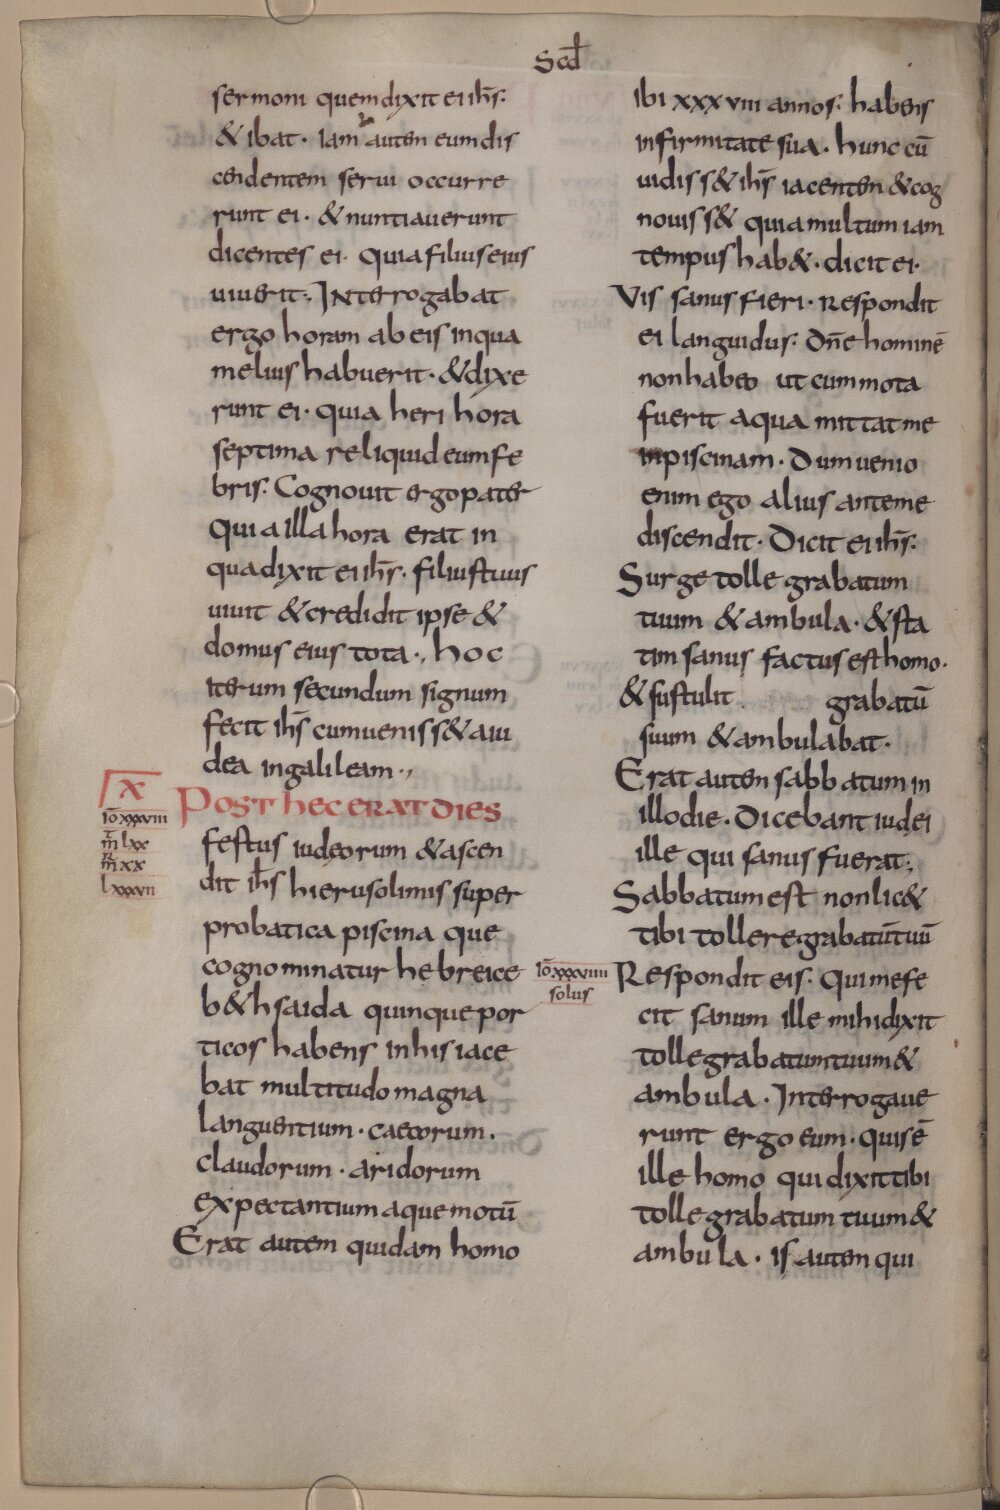 Scd
sermoni quem dixit ei ihs̄:
& ibat · Iam autem eum dis
cendentem serui occurre
runt ei · & nuntiauerunt
dicentes ei · quia filius eius
uiuerit; Interrogabat
ergo horam ab eis in qua
melius habuerit · & dixe
runt ei · quia heri hora
septima reliquid eum fe
bris: Cognouit ergo pater
qui a illa hora erat in
qua dixit ei ihs̄ · filius tuus
uiuit & credidit ipse &
domus eius tota ·, hoc
iterum secundum signum
fecit ihs̄ cum ueniss& a iu
dea in galileam ·,
X
Iō xxxviii
m̄ lxx
m̄ xx
lxxxvii
Post hec erat dies
festus iudeorum & ascen
dit ihs̄ hierusolimis super
probatica piscina que
cognominatur hebreice
b&hsaida quinque por
ticos habens in his iace
bat multitudo magna
languentium · caecorum ·
claudorum · aridorum
expectantium aque motū
Erat autem quidam homo
ibi xxxviii annos: habens
infirmitate sua · hunc cū
uidiss& ihs̄ iacentem & cog
nouiss& quia multum iam
tempus hab& · dicit ei ·
Vis sanus fieri · Respondit
ei languidus: dn̄e hominē
non habeo ut cum mota
fuerit aqua mittat me
in piscinam · Dum uenio
enim ego alius ante me
discendit · Dicit ei ihs̄:
Surge tolle grabatum
tuum & ambula · & sta
tim sanus factus est homo ·
& sustulit grabatū
suum & ambulabat ·
Erat autem sabbatum in
illo die · Dicebant iudei
ille qui sanus fuerat;
Sabbatum est non lic&
tibi tollere grabatū tuū
Iō xxxviiii
solus
Respondit eis: Qui me fe
cit sanum ille mihi dixit
tolle grabatum tuum &
ambula · Interrogaue
runt ergo eum · quis ē
ille homo qui dixit tibi
tolle grabatum tuum &
ambula · is autem qui